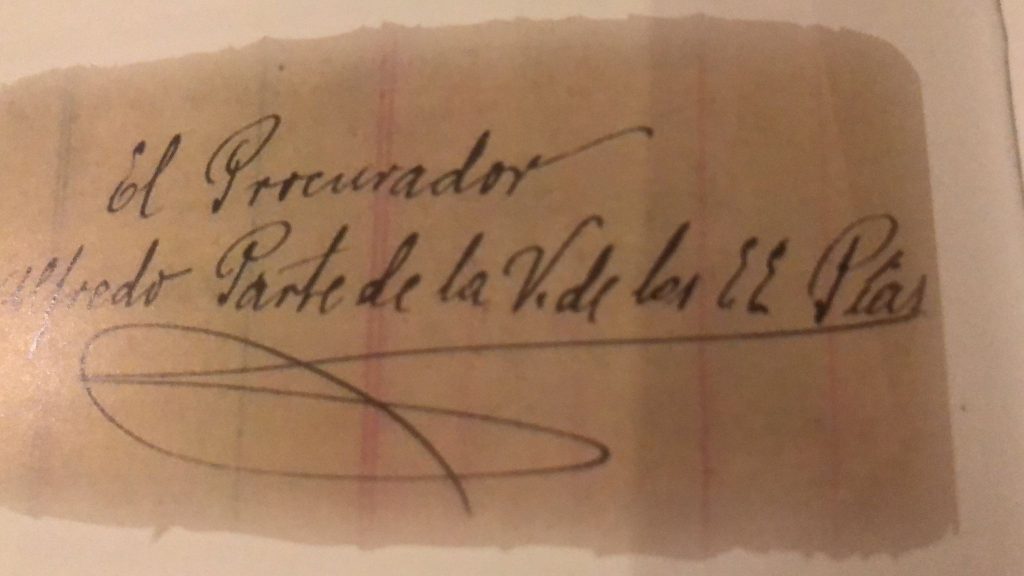 El Procurador
Alfredo Parte de la V. de los EE Pías